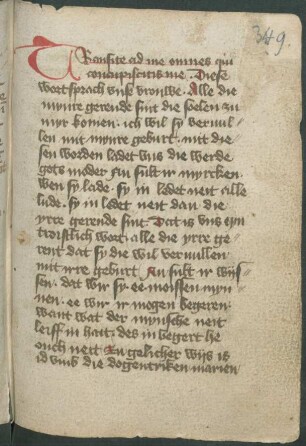 349.
Transite ad me omnes qui
concupiscitis me. Diese
wort sprach vnse vrouwe. Alle die
mynre gerende sint die soelen zu
myr komen. ich wil sy vervul-
len mit mynre geburt. mit die-
sen worden ladet vns die werde
gots moder Nu sult ir myrcken.
wen sy lade. sy in ladet neit alle
lude. sy in ladet neit dan die
yrre gerende sint. Dat is vns eyn
troistlich wort. alle die yrre ge-
rent dat sy die wil vervullen
mit irre geburt. Nu sult ir wijs-
sen. dat wir sy ee moissen myn-
nen. ee wir ir mogen begeren.
want wat der mynsche neit
leiff in hait. des in begert he
ouch neit. In gelicher wijs is
id vmb die dogentricken marien